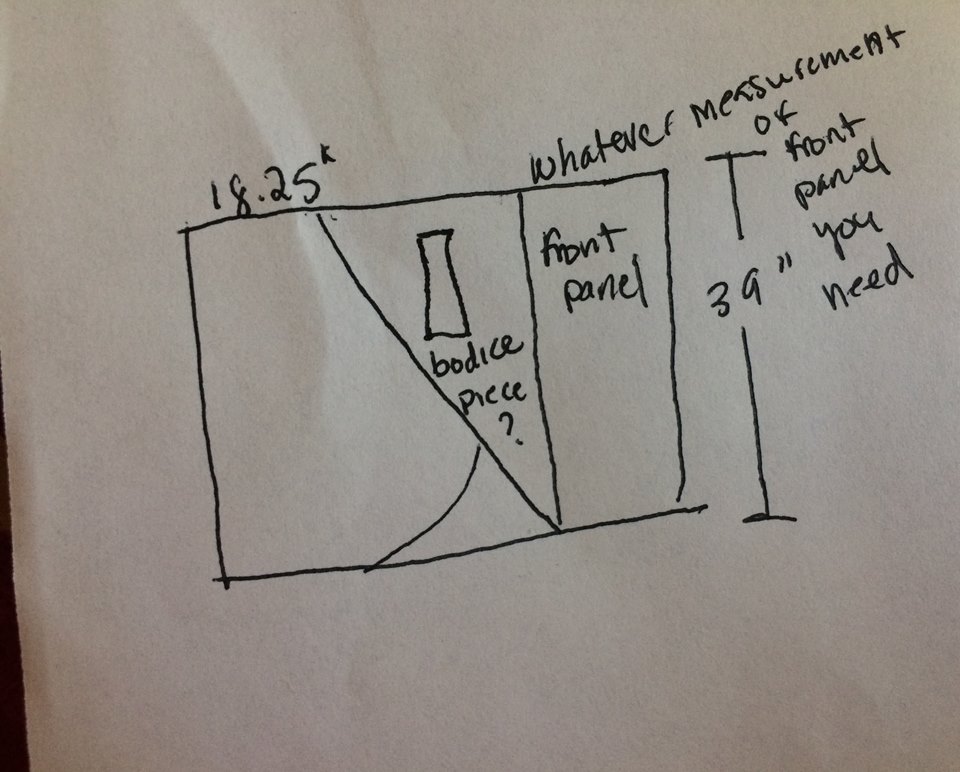 18.25"
whatever measurement
of
front
panel
you
need
front
panel
39"
bodice
piece
?